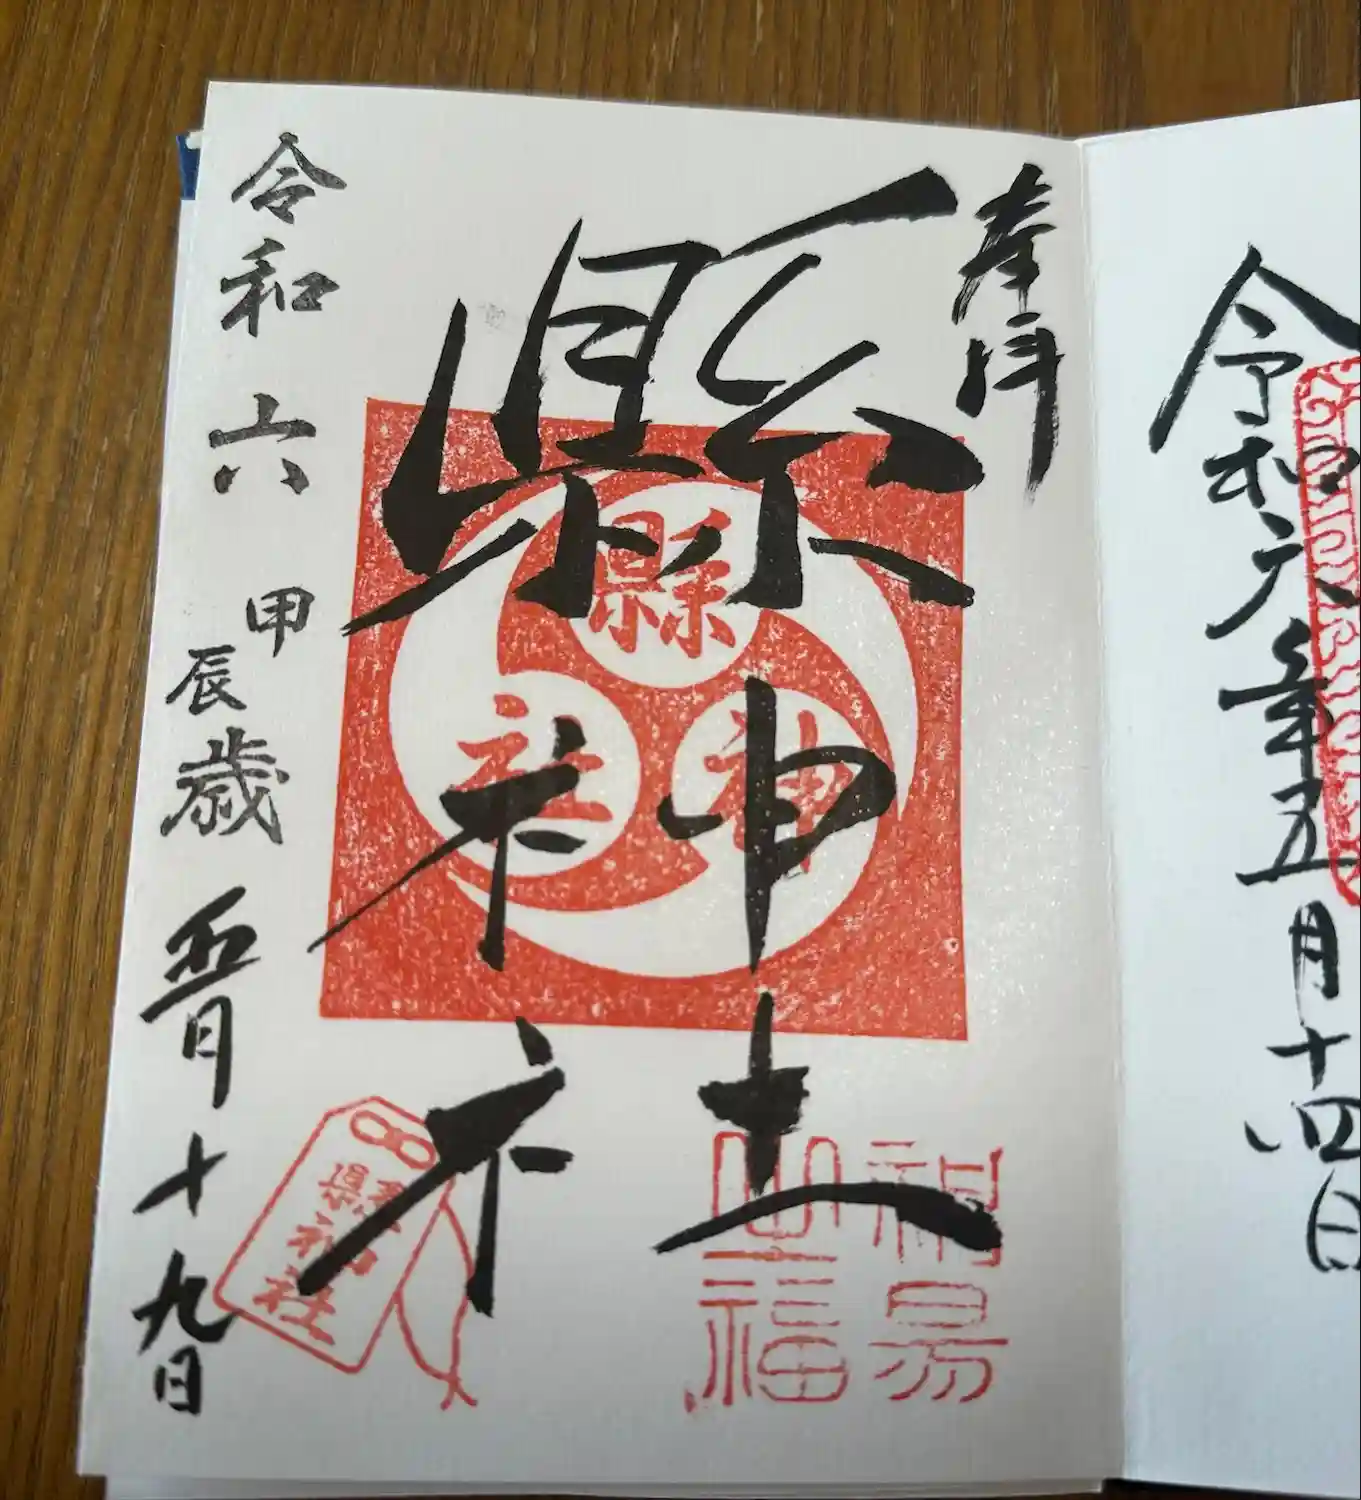 奉拝
縣
神社
令和六甲辰歳四月十九日
縣
神
社
神賜
宝福
縣神社
令和六年五月十四日